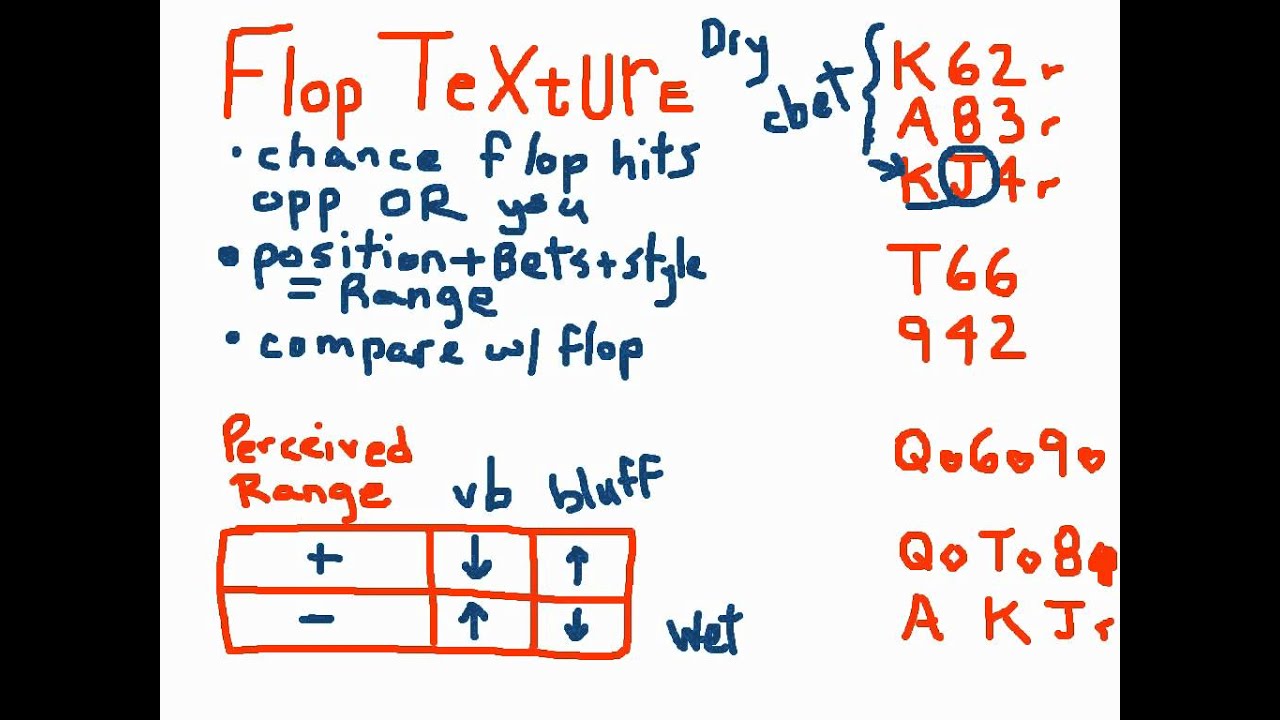 Flop Texture
• chance flop hits
opp OR you
• position+Bets+style
= Range
• compare w/ flop
Dry
cbet
K 6 2 r
A 8 3 r
K J 4 r
T 6 6
9 4 2
Perceived
Range
vb
bluff
+ ↓ ↑
− ↑ ↓
Wet
Q♦6♦9♦
Q♦T♦8♠
A K J r